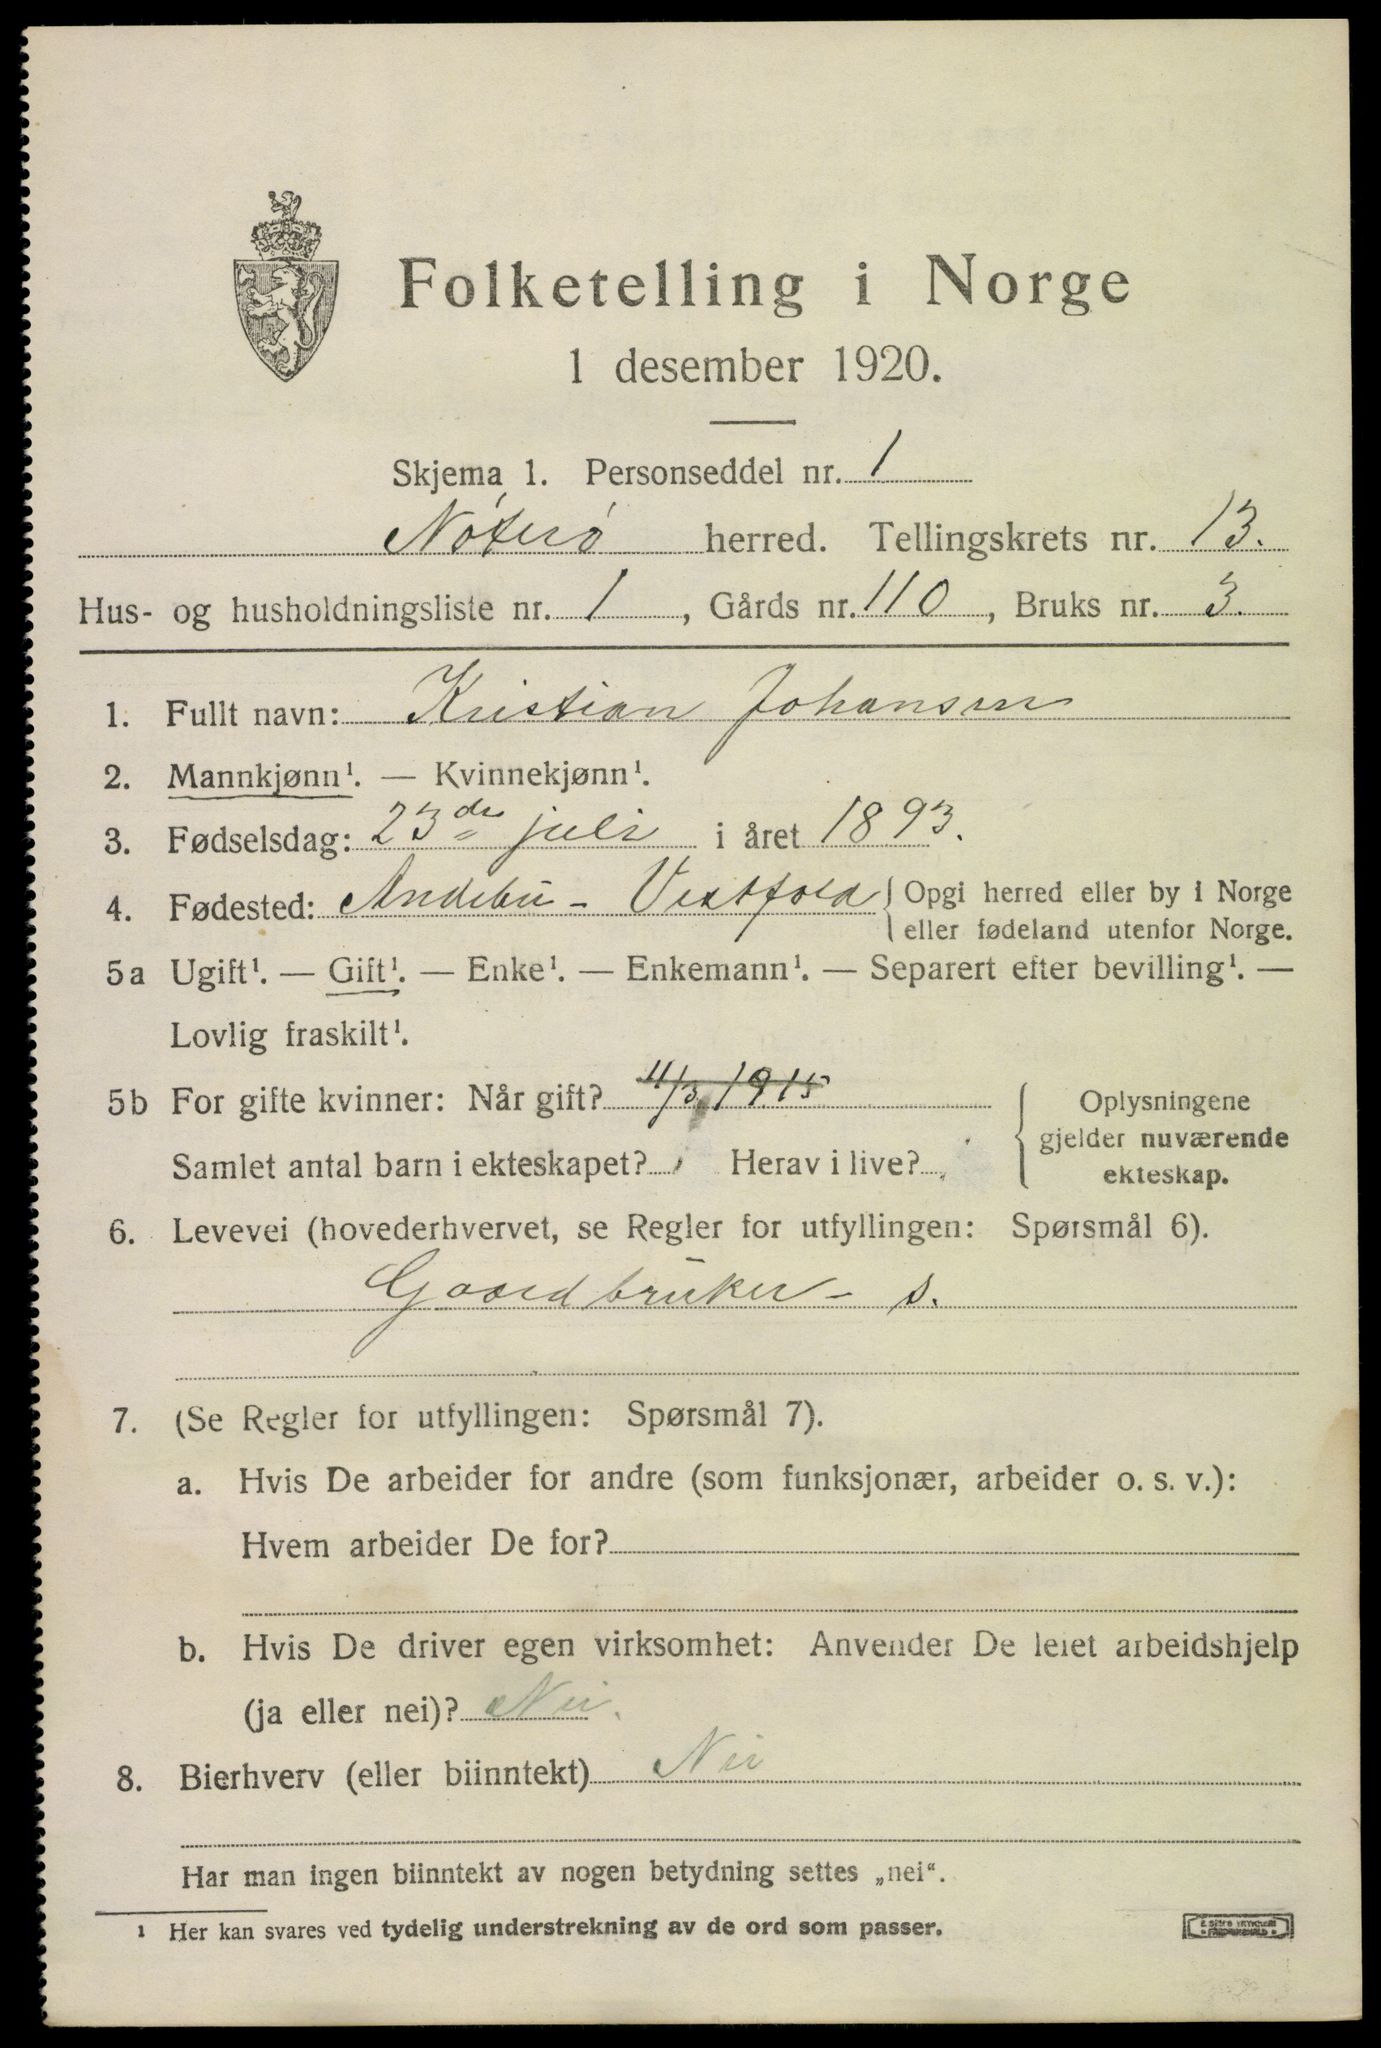 Folketelling i Norge
1 desember 1920.
Skjema 1. Personseddel nr. 1
Nøterø herred. Tellingskrets nr. 13.
Hus- og husholdningsliste nr. 1, Gårds nr. 110, Bruks nr. 3.
1. Fullt navn: Kristian Johansen
2. Mannkjønn¹. — Kvinnekjønn¹.
3. Fødselsdag: 23de juli i året 1893.
4. Fødested: Andebu - Vestfold { Opgi herred eller by i Norge
eller fødeland utenfor Norge.
5a Ugift¹. — Gift¹. — Enke¹. — Enkemann¹. — Separert efter bevilling¹. —
Lovlig fraskilt¹.
5b For gifte kvinner: Når gift? 4/3 1915
Samlet antal barn i ekteskapet? Herav i live?
{ Oplysningene
gjelder nuværende
ekteskap.
6. Levevei (hovederhvervet, se Regler for utfyllingen: Spørsmål 6).
Gaardbruker - s.
7. (Se Regler for utfyllingen: Spørsmål 7).
a. Hvis De arbeider for andre (som funksjonær, arbeider o. s. v.):
Hvem arbeider De for?
b. Hvis De driver egen virksomhet: Anvender De leiet arbeidshjelp
(ja eller nei)? Nei.
8. Bierhverv (eller biinntekt) Nei
Har man ingen biinntekt av nogen betydning settes „nei“.
¹ Her kan svares ved tydelig understrekning av de ord som passer.